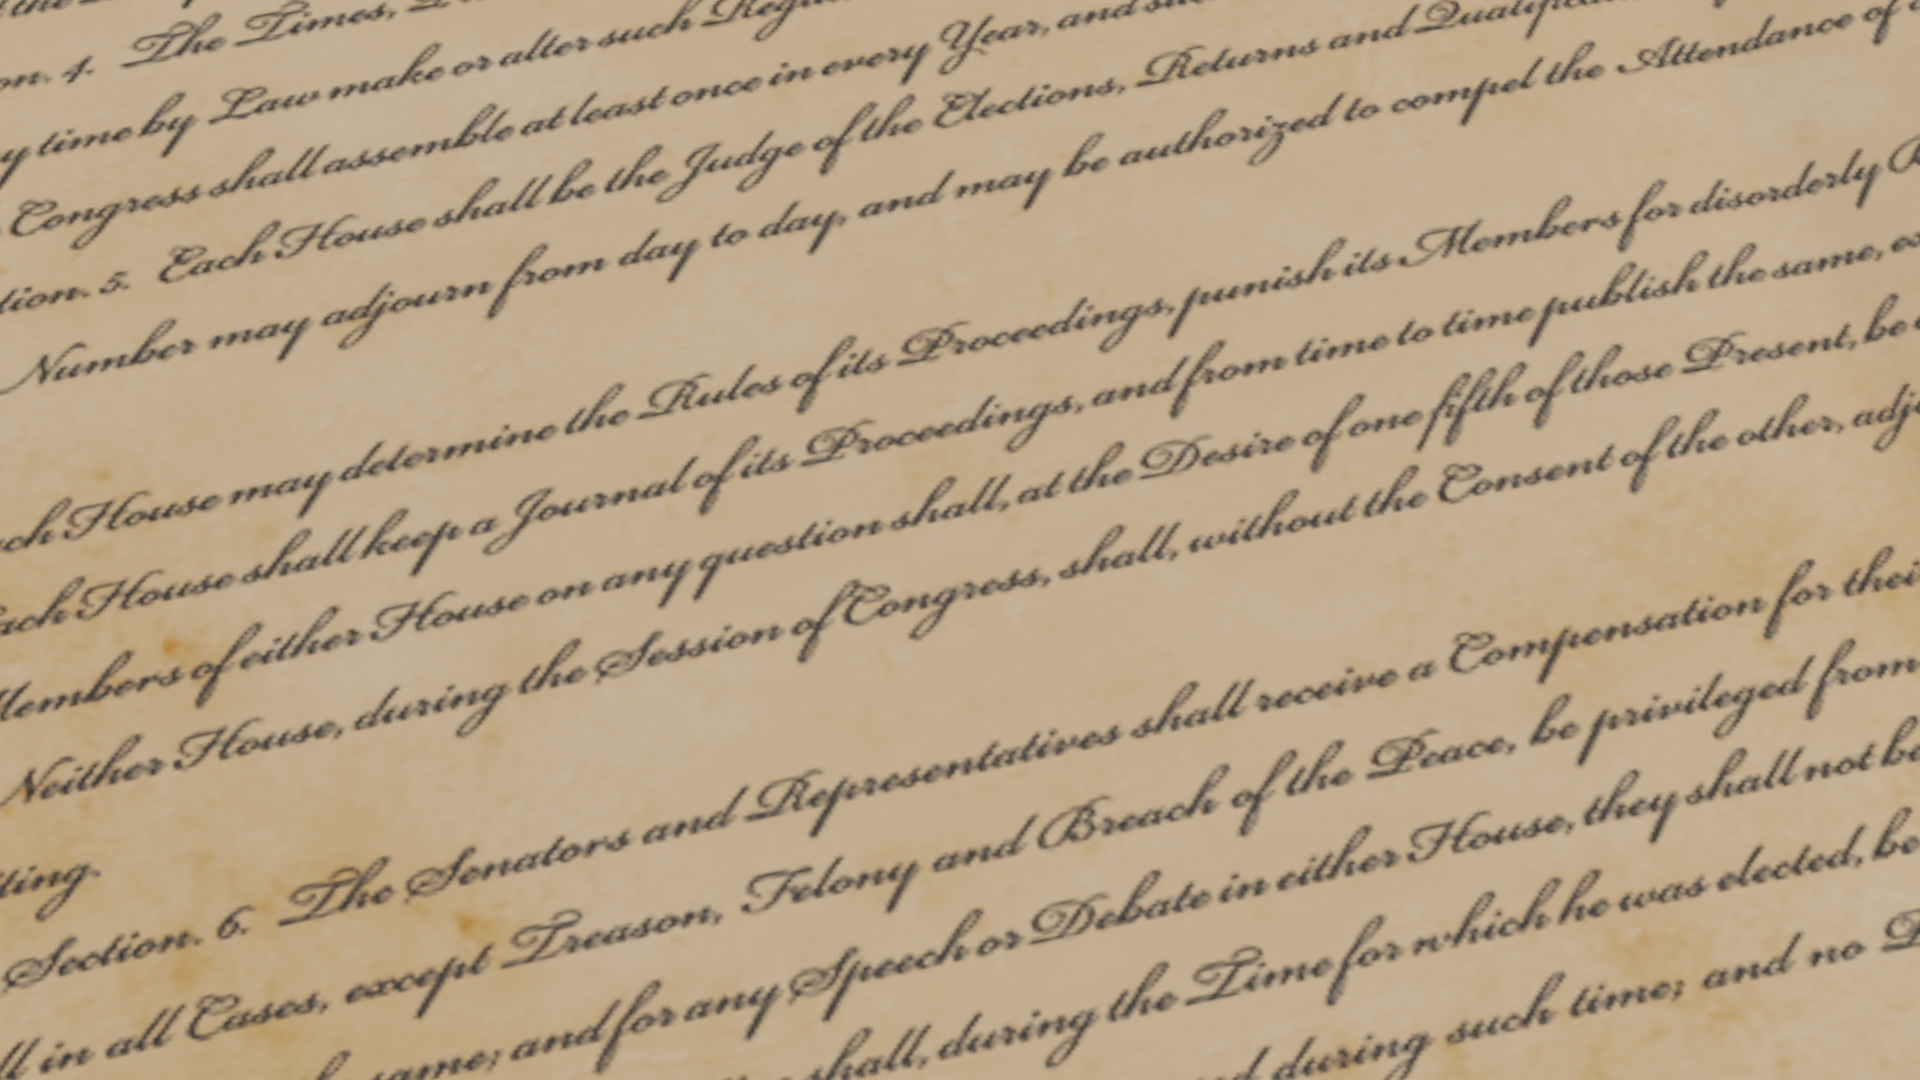 on. 4. The Times,
y time by Law make or alter such
Congress shall assemble at least once in every Year, and
tion. 5. Each House shall be the Judge of the Elections, Returns and
Number may adjourn from day to day, and may be authorized to compel the Attendance of
ch House may determine the Rules of its Proceedings, punish its Members for disorderly
ach House shall keep a Journal of its Proceedings, and from time to time publish the same,
Members of either House on any question shall, at the Desire of one fifth of those Present, be
Neither House, during the Session of Congress, shall, without the Consent of the other, adj
ting.
Section. 6. The Senators and Representatives shall receive a Compensation for thei
ll in all Cases, except Treason, Felony and Breach of the Peace, be privileged from
same; and for any Speech or Debate in either House, they shall not be
shall, during the Time for which he was elected, be
during such time; and no